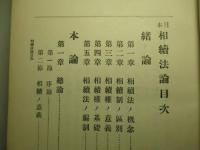 日本相續法論目次
緖論
第一章 相續法ノ概念
第二章 相續制ノ區別
第三章 相續權ノ意義
第四章 相續權ノ基礎
第五章 相續法ノ編制
本論
第一章 總論
第一節 序論
第二節 相續ノ意義